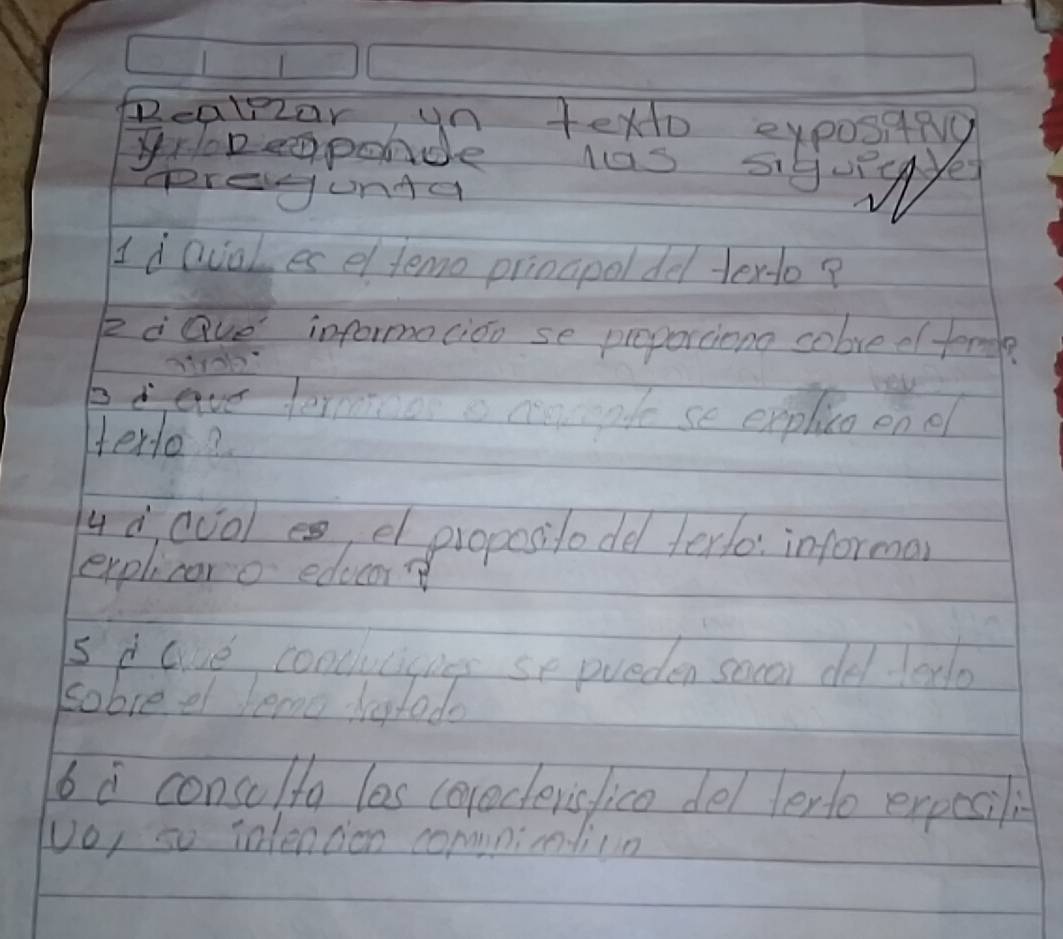 Realizar un texto expositivo
y Responde las siguientes
pregunta
1 ¿ cual es el tema principal del texto?
2 ¿ Qué información se proporciona sobre el tema?
3 ¿ Qué terminos o concepto se explica en el
texto?
4 ¿ cual es el proposito del texto: informar
explicar o educar?
5 ¿ Qué conclusiones se pueden sacar del texto
sobre el tema tratado
6 ¿ consulta las caracteristica del texto expositi
vo, su intencion comunicativa